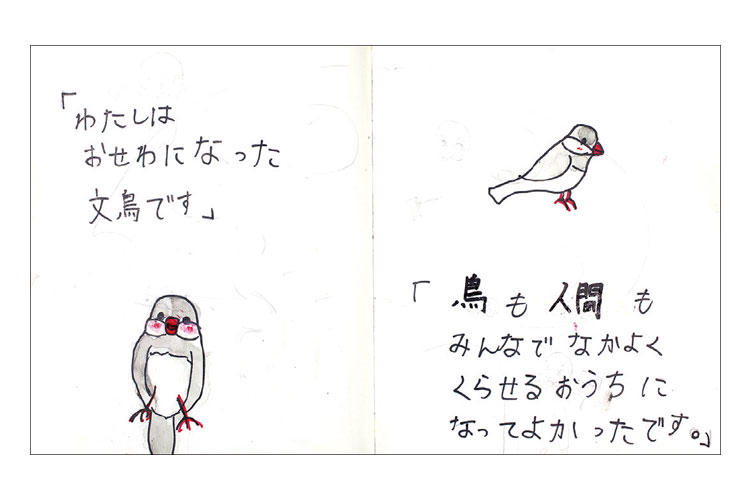 「わたしは
おせわになった
文鳥です」
「鳥も人間も
みんなでなかよく
くらせるおうちに
なってよかったです。」